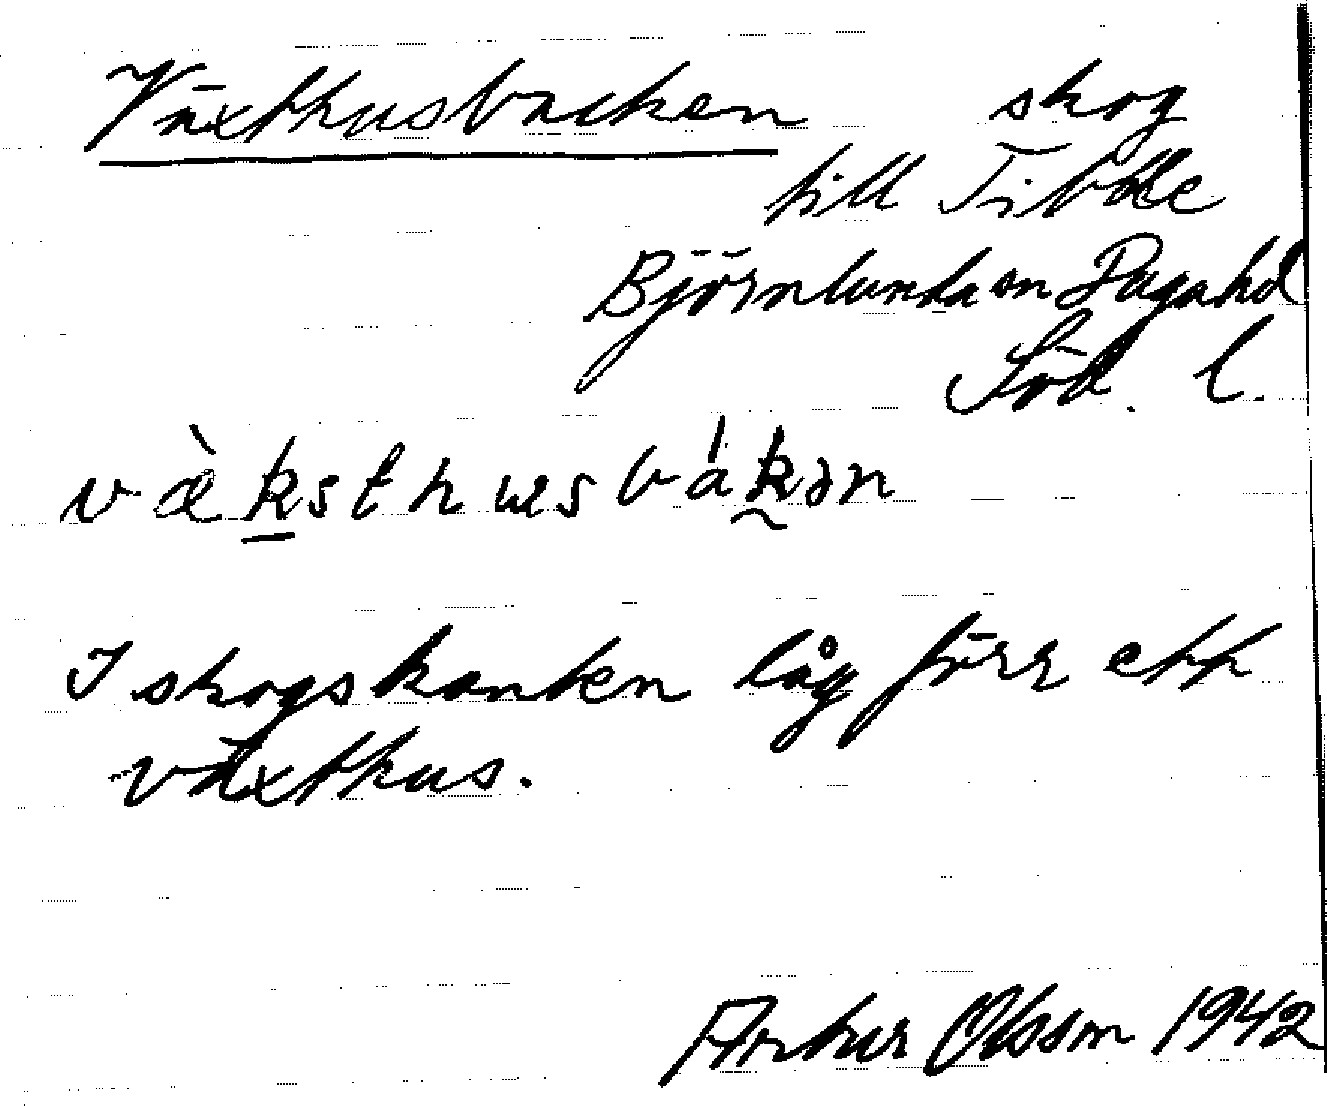 Växthusbacken skog
till Tibble
Björnlunda sn Daga hd
Söd. l.
væ̀ksthusbákən
I skogskanten låg förr ett
växthus.
Arthur Olsson 1942